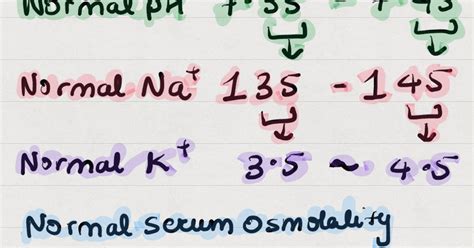 Normal pH 7.35 - 7.45
Normal Na⁺ 135 - 145
Normal K⁺ 3.5 ~ 4.5
Normal Serum Osmolality